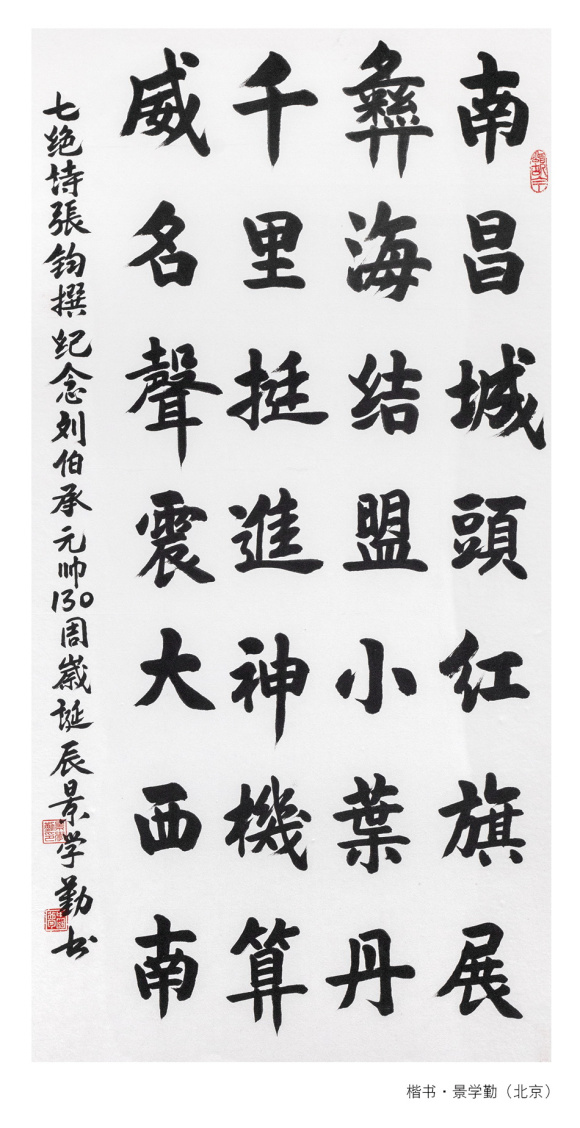 南昌城頭红旗展
彝海结盟小葉丹
千里挺進神機算
威名聲震大西南
七绝诗張钧撰纪念刘伯承元帅130周嵗誕辰景学勤书
楷书·景学勤（北京）